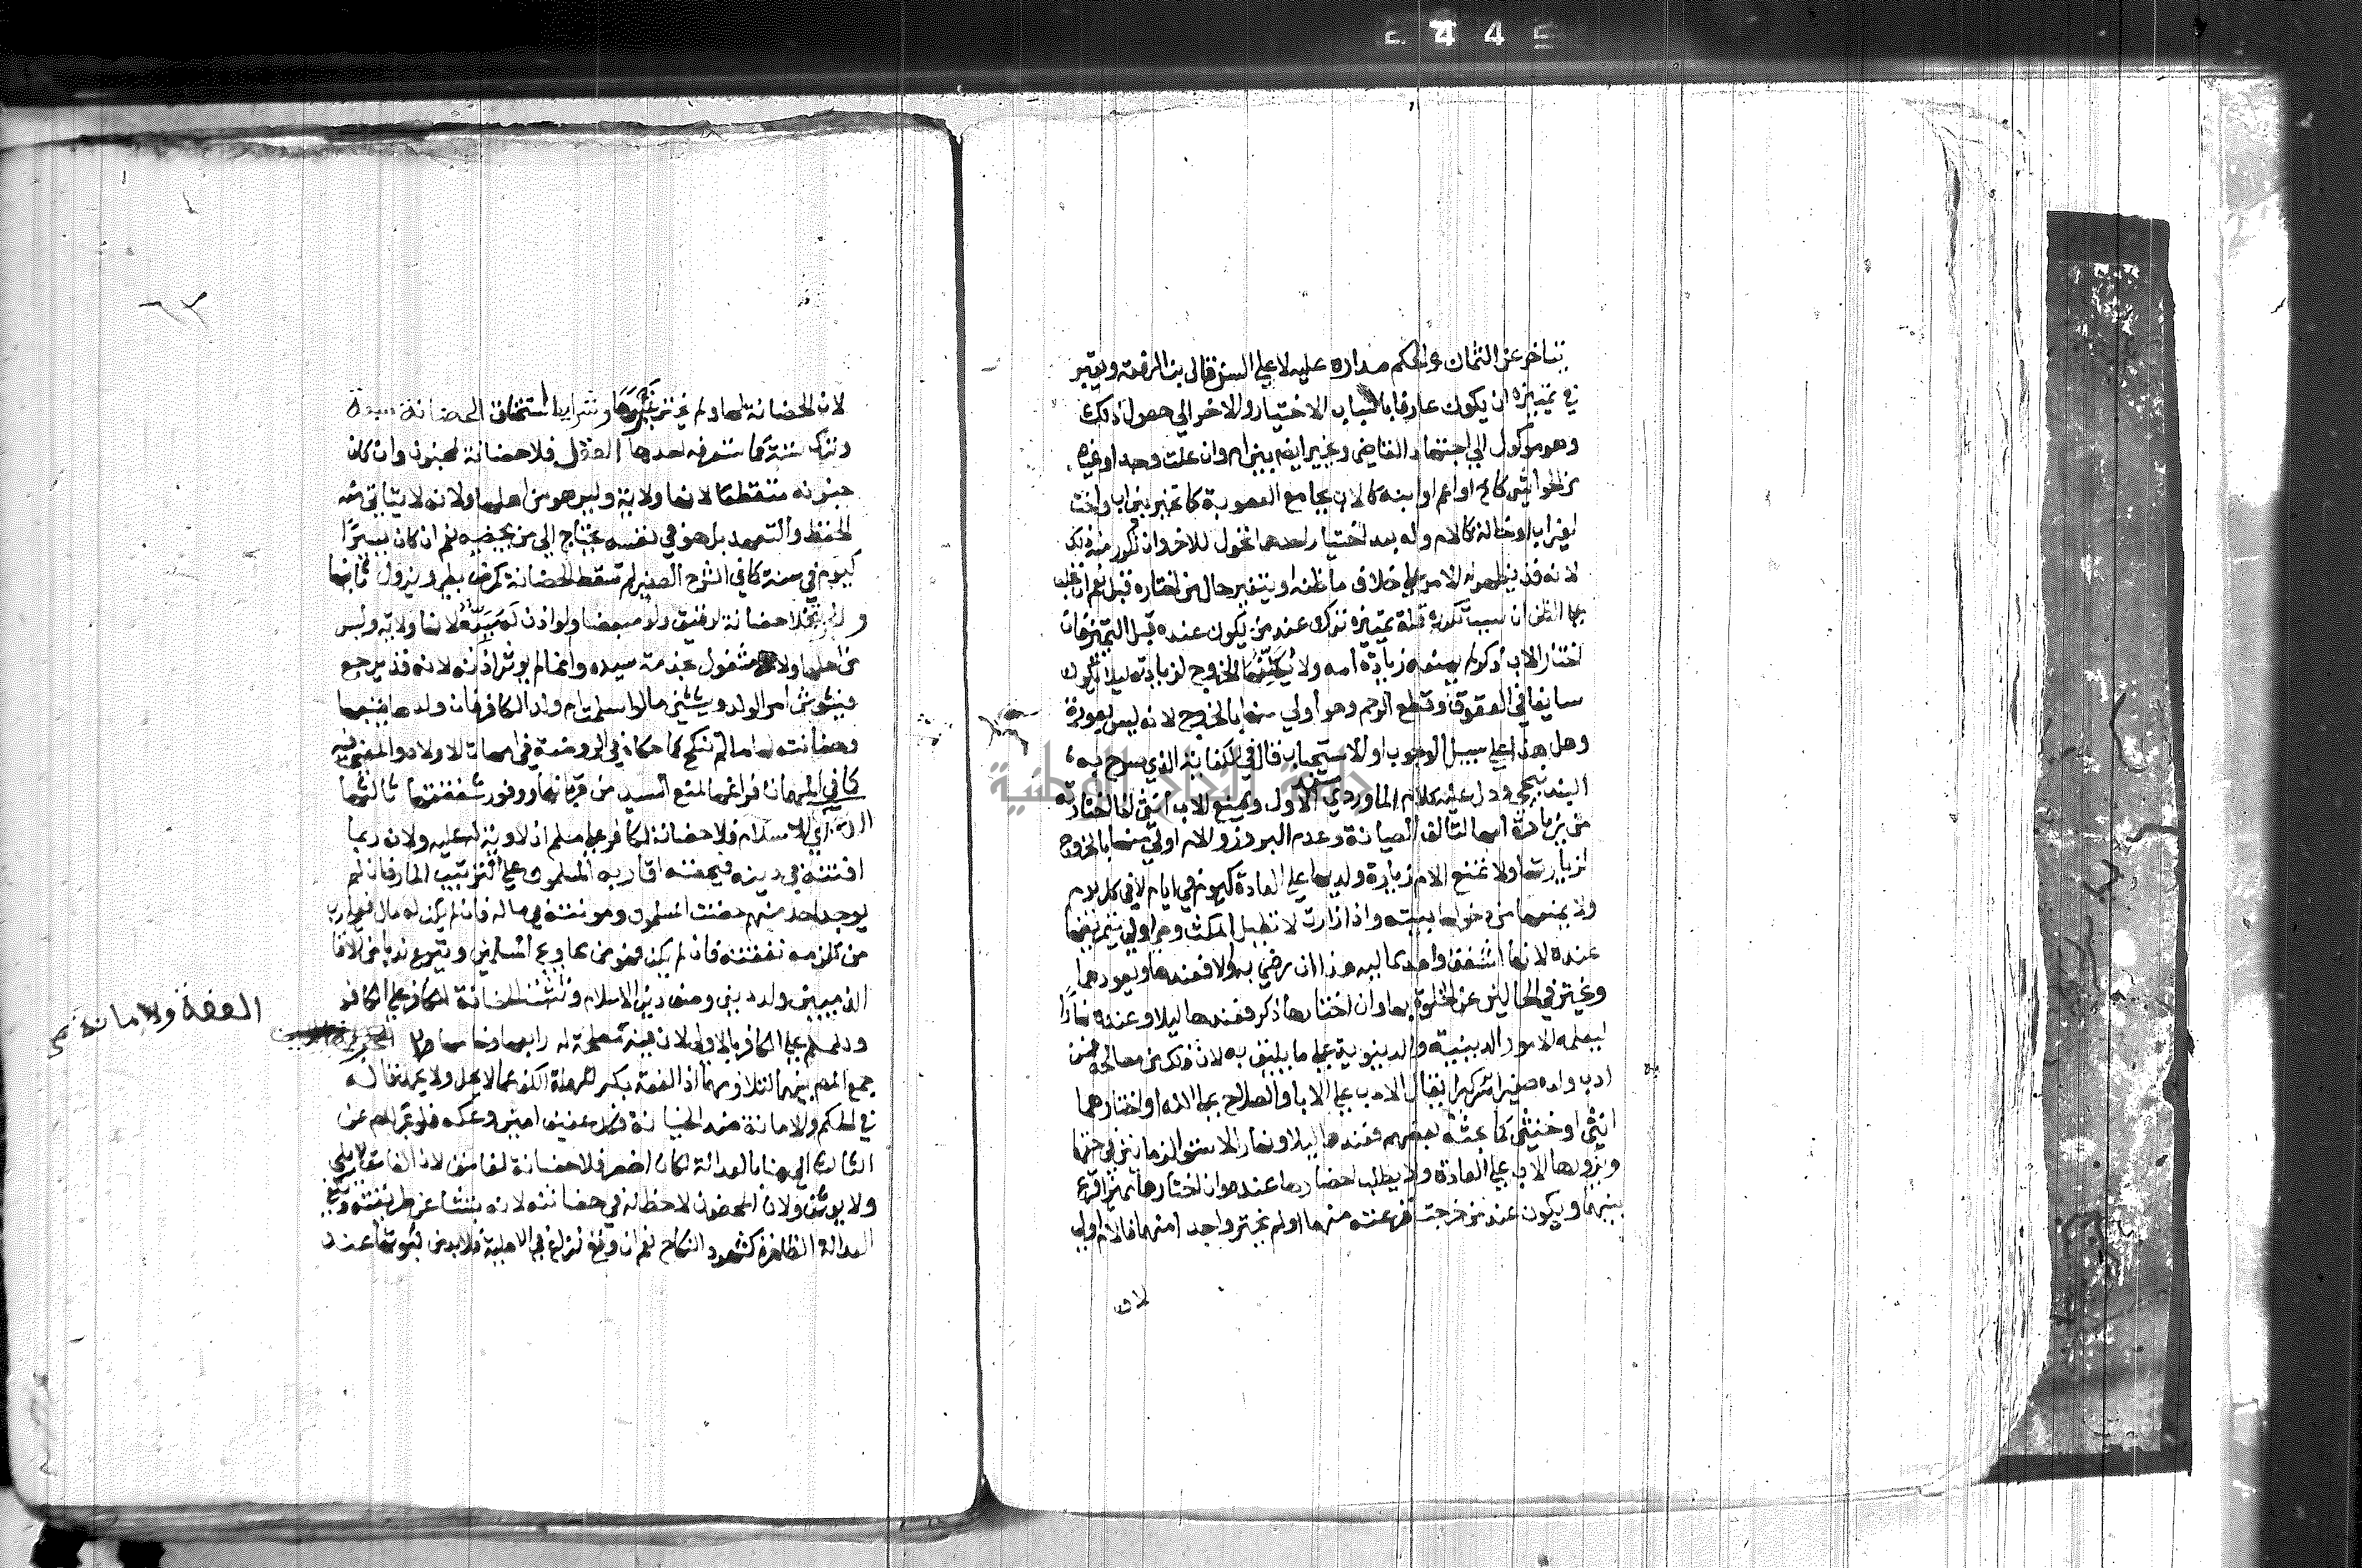 يتاخر عن الثمان والحكم مداره عليه لا علي السن قال ابن الرفعة ويعتبر
في تمييزه ان يكون عارفا باسباب الاختيار والا اخر الي حصول ذلك
وهو موكول الي اجتهاد القاضي وتخير ايضا بين ام وان علت وجد او غيره
من الحواشي كاخ او عم او ابنه كالاب بجامع العصوبة كما تخير بين اب واخت
لغير اب او خالة كالام وله بعد اختيار احدهما تحول للاخر وان تكرر منه ذلك
لانه قد يظهر له الامر علي خلاف ما ظنه او يتغير حال من اختاره قبل نعم ان غلب
علي الظن ان سبب تكرره قلة تمييزه ترك عند من يكون عنده قبل التمييز فان
اختار الاب ذكر لم يمنعه زيارة امه ولا يكلفها الخروج لزيارته ليلا يكون
ساعيا في العقوق وقطع الرحم وهو اولي منها بالخروج لانه ليس بعورة
وهل هذا علي سبيل الوجوب او الاستحباب قال في الكفاية الذي صرح به
البندنيجي ودل عليه كلام الماوردي الاول ويمنع الاب انثي اذا اختارته
من زيارة امها لتالف الصيانة وعدم البروز والام اولي منها بالخروج
لزيارتها ولا تمنع الام زيارة ولديها علي العادة كيوم في ايام لا في كل يوم
ولا يمنعها من دخولها بيته واذا زارت لا تطيل المكث وهي اولي بتمريضهما
عنده لانها اشفق واهدي اليه هذا ان رضي به والا فعندها ويعودهما
ويحترز في الحالين عن الخلوة بها وان اختارها ذكر فعندها ليلا وعنده نهارا
ليعلمه الامور الدينية والدنيوية علي ما يليق به لان ذلك من مصالحه فمن
ادب ولده صغيرا سر كبيرا يقال الادب علي الابا والصلاح علي الله او اختارها
انثي او خنثي كما بحثه بعضهم فعندها ليلا ونهارا لاستوا الزمانين في حقها
ويزورها الاب علي العادة ولا يطلب احضارها عنده وان اختارها مميز اقرع
بينهما ويكون عند من خرجت قرعته منهما او لم يختر واحدا منهما فالام اولي
لان
لان الحضانة لها ولم يختر غيرها وشرايط استحقاق الحضانة سبعة
وترك ستة كما ستعرفه احدها العقل فلا حضانة لمجنون وان كان
جنونه متقطعا لانها ولاية وليس هو من اهلها ولانه لا يتاتي منه
الحفظ والتعهد بل هو في نفسه يحتاج الي من يحضنه نعم ان كان يسيرا
كيوم في سنة كما في الشرح الصغير لم تسقط الحضانة كمرض يطرو ويزول ثانيها
والحرية فلا حضانة لرقيق ولو مبعضا ولو اذن له سيده لانها ولاية وليس
من اهلها ولانه مشغول بخدمة سيده وانما لم يوثر اذنه لانه قد يرجع
فيشوش امر الولد ويستثني ما لو اسلمت ام ولد الكافر فان ولدها يتبعها
وحضانته لها ما لم تنكح كما حكاه في الروضة في امهات الاولاد والمعني فيه
كما في المهمات فراغها لمنع السيد من قربانها ووفور شفقتها ثالثها
الدين اي الاسلام فلا حضانة لكافر علي مسلم اذ لا ولاية له عليه ولانه ربما
افتتنه في دينه فيحضنه اقاربه المسلمون علي الترتيب المار فان لم
يوجد احد منهم حضنه المسلمون ومونته في ماله فان لم يكن له مال فعلي
من تلزمه نفقته فان لم يكن فهو من محاويج المسلمين وينزع ندبا من الاقا
الذميين ولد ذمي وصف دين الاسلام وتثبت الحضانة للكافر علي الكافر
وللمسلم علي الكافر بالاولي لان فيه مصلحة له رابعها وخامسها
العفة والامانة صح
جمع المصنف بينهما لتلازمهما اذ العفة بكسر المهملة الكف عما لا يحل ولا يحمد
في الحكم والامانة ضد الخيانة فكل عفيف امين وعكسه فلو عبر المصنف عن
الثالث الي هنا بالعدالة لكان اخصر فلا حضانة لفاسق لان الفاسق لا يلي
ولا يوتمن ولان المحضون لا حظ له في حضانته لانه ينشا علي طريقته وتكفي
العدالة الظاهرة كشهود النكاح نعم ان وقع نزاع في الاهلية فلا بد من ثبوتها عند